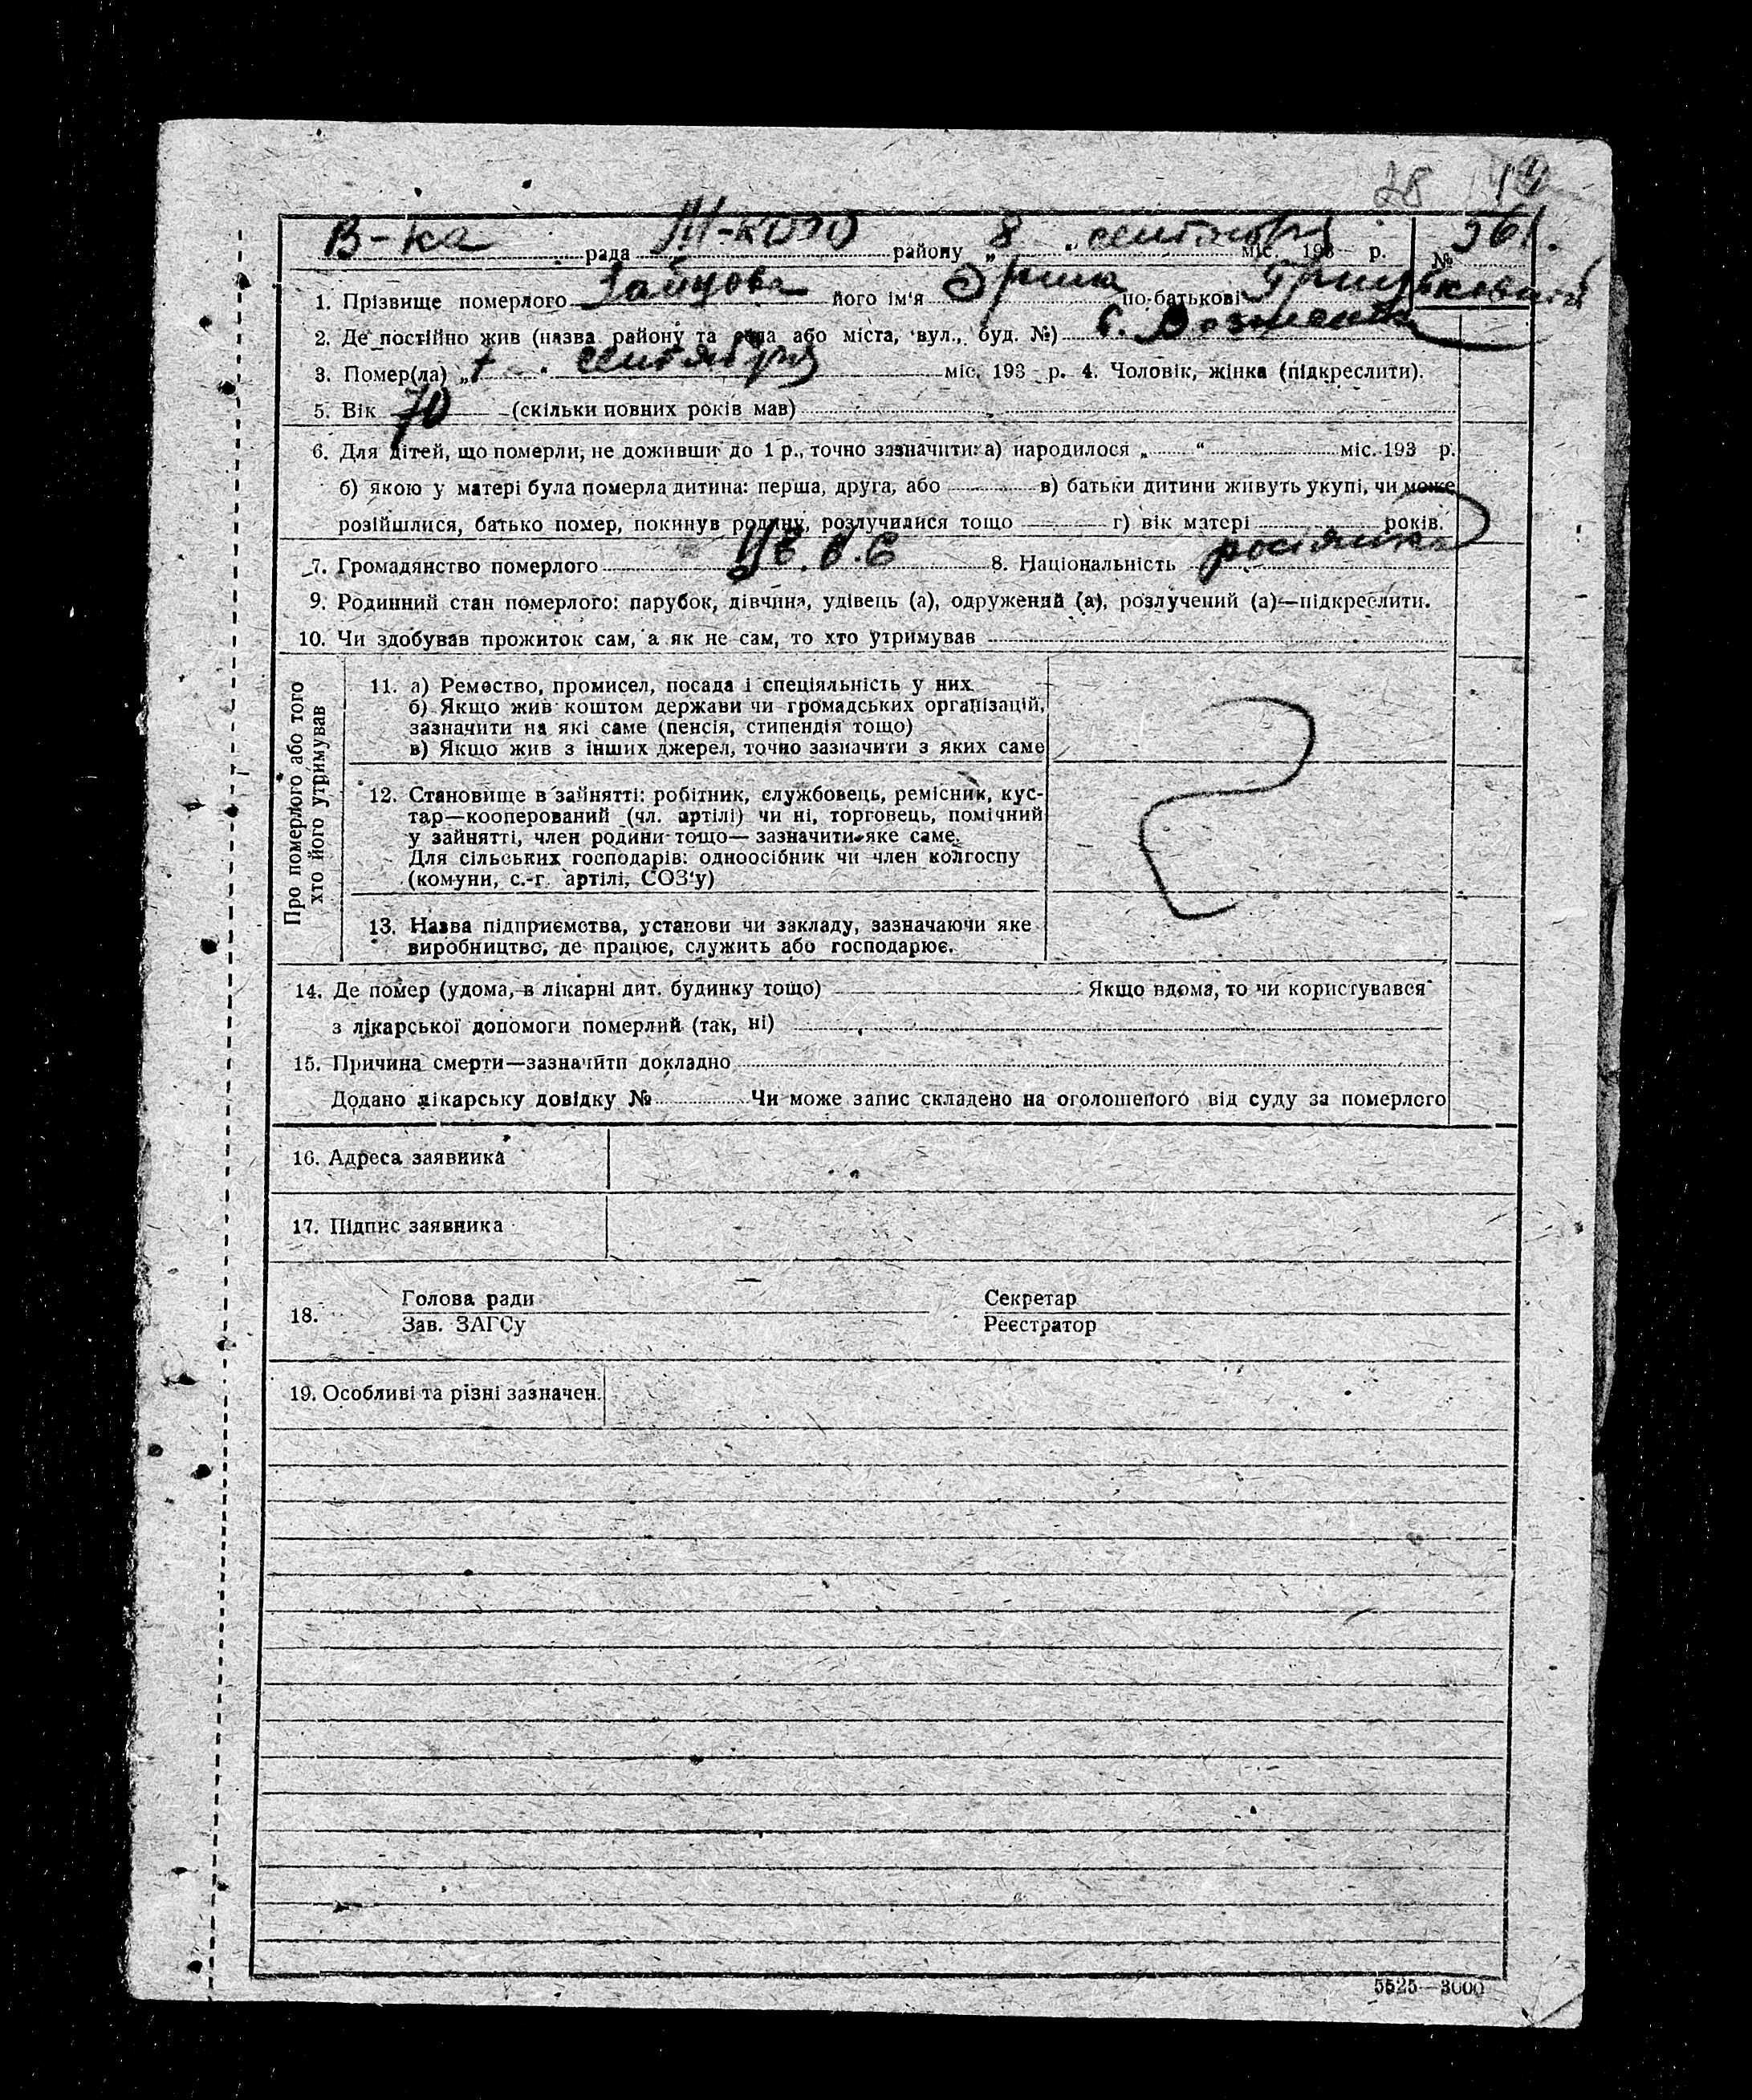 28
В-ка рада М-кого району „ 8 “ сентября міс. 193 р. № 561.
1. Прізвище померлого Зайцова його ім'я по-батькові
2. Де постійно жив (назва району та села або міста, вул., буд. №) с.
3. Помер(ла) „ “ сентября міс. 193 р. 4. Чоловік, жінка (підкреслити).
5. Вік 70 (скільки повних років мав)
6. Для дітей, що померли, не доживши до 1 р., точно зазначити: а) народилося „ “ міс. 193 р.
б) якою у матері була померла дитина: перша, друга, або в) батьки дитини живуть укупі, чи може
розійшлися, батько помер, покинув родину, розлучилися тощо г) вік матері років.
7. Громадянство померлого 8. Національність росіянка
9. Родинний стан померлого: парубок, дівчина, удівець (а), одружений (а), розлучений (а)—підкреслити.
10. Чи здобував прожиток сам, а як не сам, то хто утримував
Про померлого або того хто його утримував
11. а) Ремество, промисел, посада і спеціяльність у них
б) Якщо жив коштом держави чи громадських організацій,
зазначити на які саме (пенсія, стипендія тощо)
в) Якщо жив з інших джерел, точно зазначити з яких саме
12. Становище в зайнятті: робітник, службовець, ремісник, кус-
тар—кооперований (чл. артілі) чи ні, торговець, помічний
у зайнятті, член родини тощо—зазначити яке саме.
Для сільських господарів: одноосібник чи член колгоспу
(комуни, с.-г. артілі, СОЗ'у)
13. Назва підприємства, установи чи закладу, зазначаючи яке
виробництво, де працює, служить або господарює.
14. Де помер (удома, в лікарні дит. будинку тощо) Якщо вдома, то чи користувався
з лікарської допомоги померлий (так, ні)
15. Причина смерти—зазначити докладно
Додано лікарську довідку № Чи може запис складено на оголошеного від суду за померлого
16. Адреса заявника
17. Підпис заявника
18. Голова ради Секретар
Зав. ЗАГСу Реєстратор
19. Особливі та різні зазначен.
5525—3000